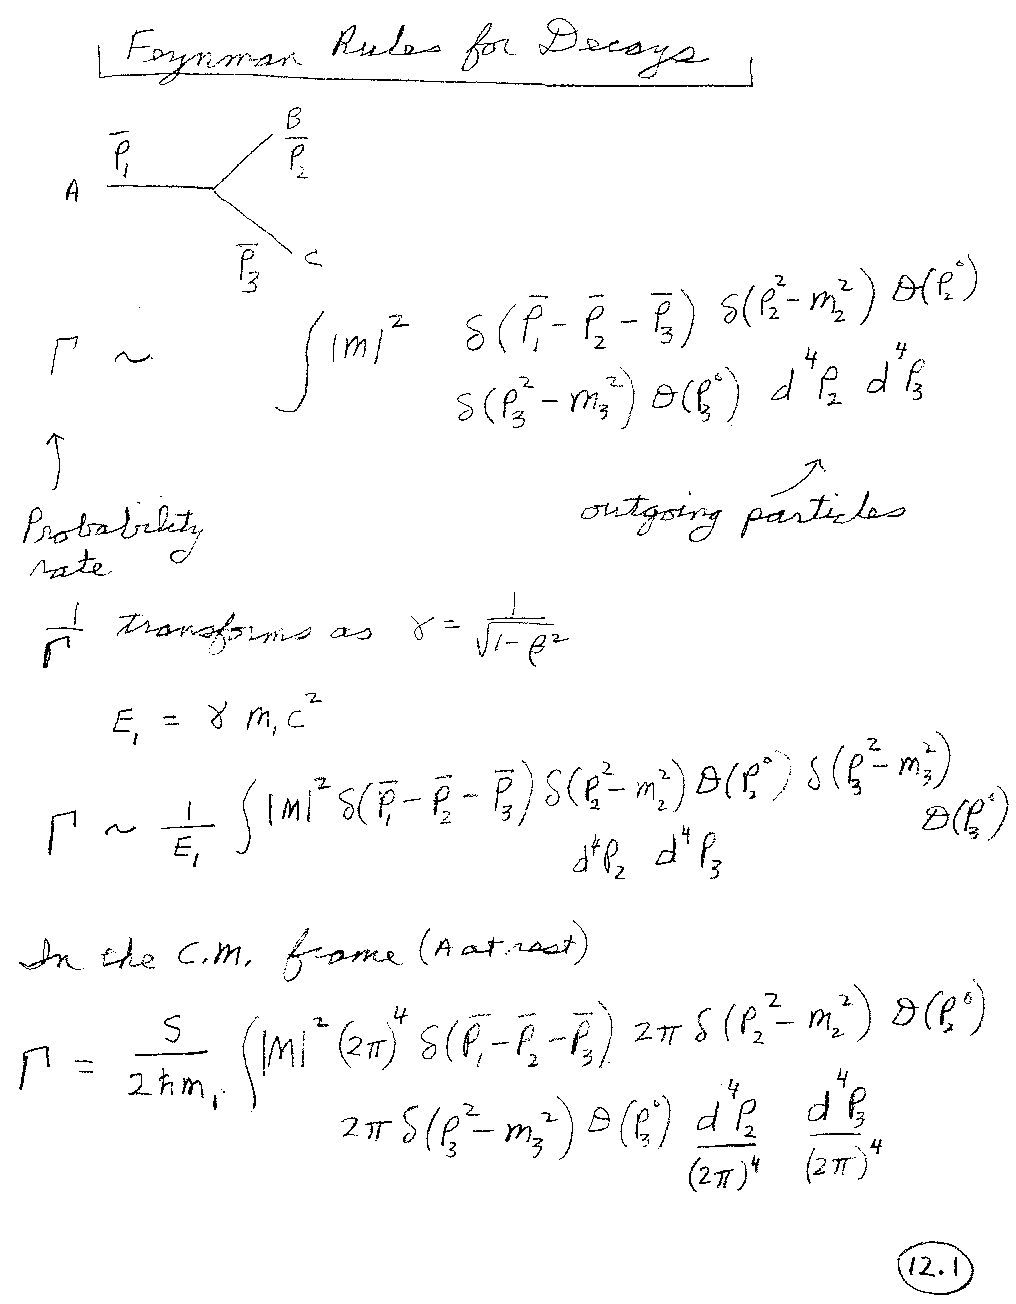 Feynman Rules for Decays
B
P̅₁ P̅₂
A
P̅₃ C
Γ ~ ∫|m|² δ(P̅₁ - P̅₂ - P̅₃) δ(P₂² - m₂²) θ(P₂⁰)
δ(P₃² - m₃²) θ(P₃⁰) d⁴P₂ d⁴P₃
↑
Probability rate
outgoing particles
1/Γ transforms as γ = 1/√(1-β²)
E₁ = γ m₁c²
Γ ~ 1/E₁ ∫|m|² δ(P̅₁ - P̅₂ - P̅₃) δ(P₂² - m₂²) θ(P₂⁰) δ(P₃² - m₃²)
θ(P₃⁰)
d⁴P₂ d⁴P₃
In the C.M. frame (A at rest)
Γ = S/(2ħm₁) ∫|M|² (2π)⁴ δ(P̅₁ - P̅₂ - P̅₃) 2π δ(P₂² - m₂²) θ(P₂⁰)
2π δ(P₃² - m₃²) θ(P₃⁰) d⁴P₂/(2π)⁴ d⁴P₃/(2π)⁴
12.1